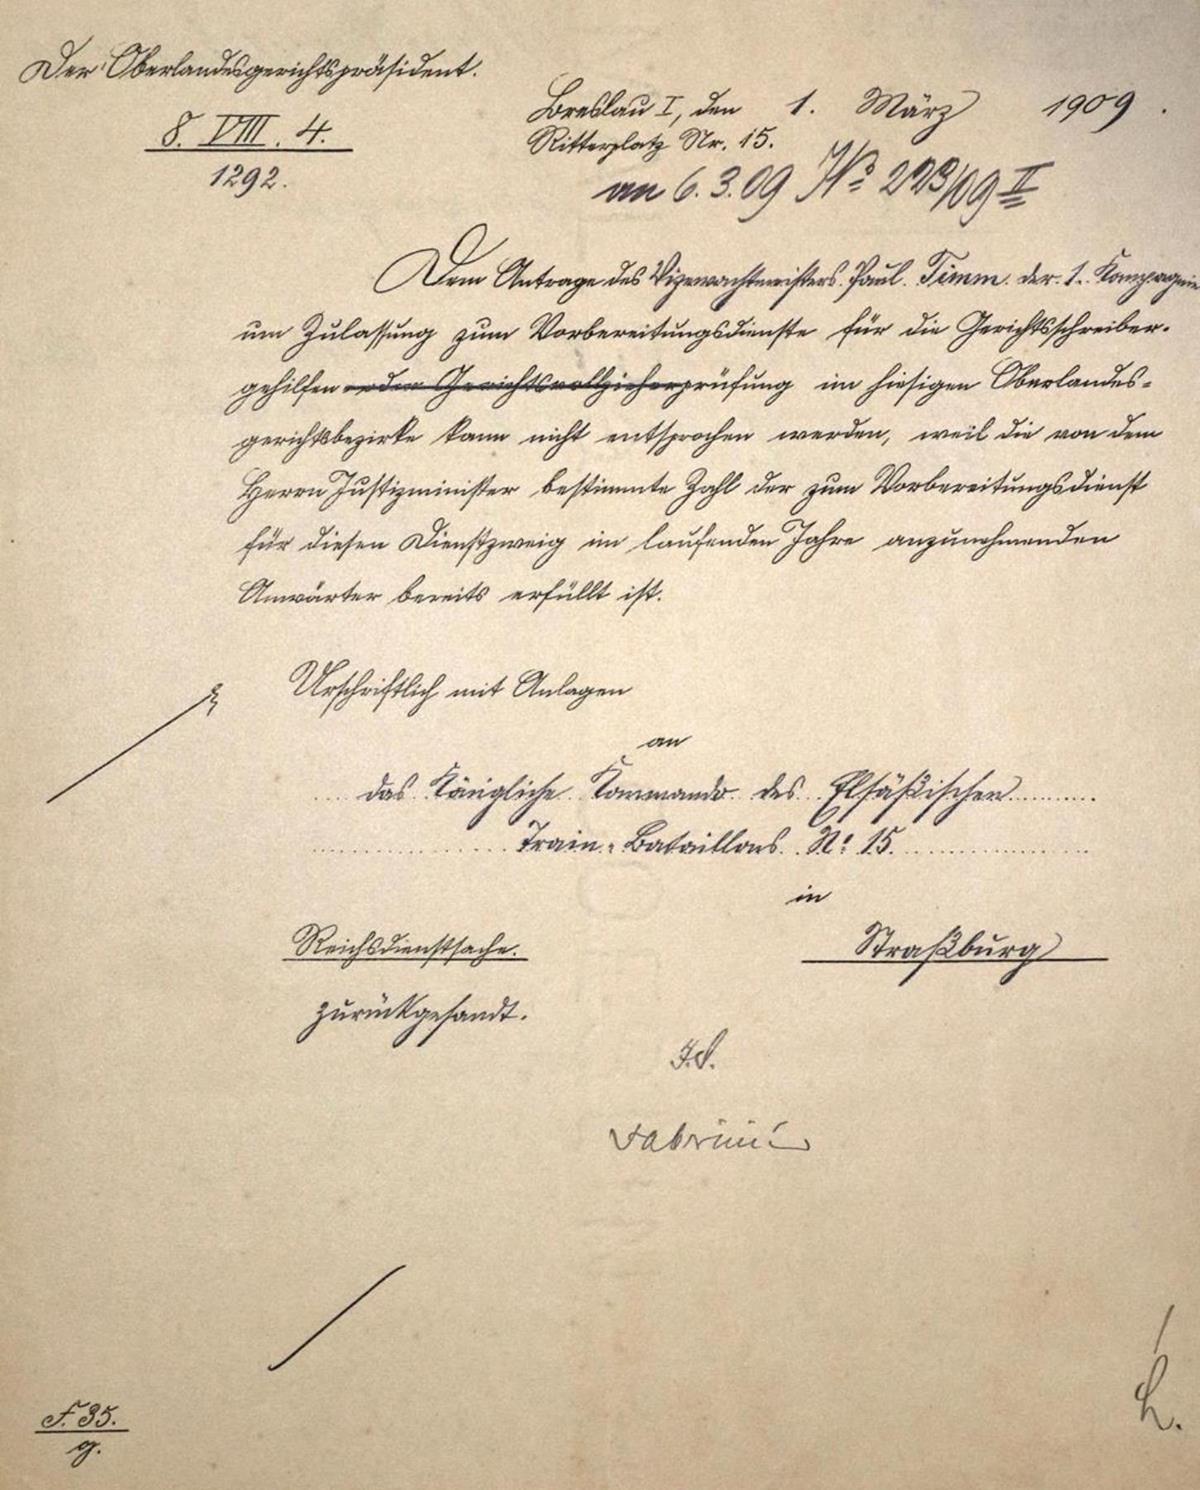 Der Oberlandesgerichtspräsident.
8. VIII. 4.
1292.
Breslau I, den 1. März 1909.
Ritterplatz Nr. 15.
an 6.3.09 No 223/09 II
Dem Antrage des Vizewachtmeisters Paul Timm der 1. Kompagnie
um Zulassung zum Vorbereitungsdienste für die Gerichtsschreiber-
gehilfen oder Gerichtsvollzieherprüfung im hiesigen Oberlandes-
gerichtsbezirke kann nicht entsprochen werden, weil die von dem
Herrn Justizminister bestimmte Zahl der zum Vorbereitungsdienst
für diesen Dienstzweig im laufenden Jahre anzunehmenden
Anwärter bereits erfüllt ist.
Urschriftlich mit Anlagen
an
das Königliche Kommando des Elsäßischen
Train-Bataillons No 15.
in
Straßburg
Reichsdienstsache.
zurückgesandt.
F. 35.
g.